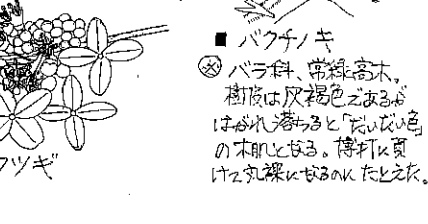 ■ バクチノキ
バラ科、常緑高木。
樹皮は灰褐色であるが
はがれ落ちると「だいだい色」
の木肌となる。博打に負
けて丸裸になるのにたとえた。
ウツギ